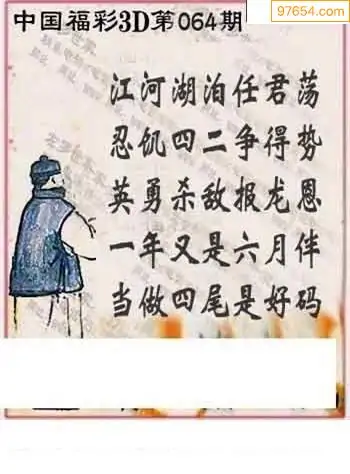 97654.com
中国福彩3D第064期
江河湖泊任君荡
忍饥四二争得势
英勇杀敌报龙恩
一年又是六月伴
当做四尾是好码